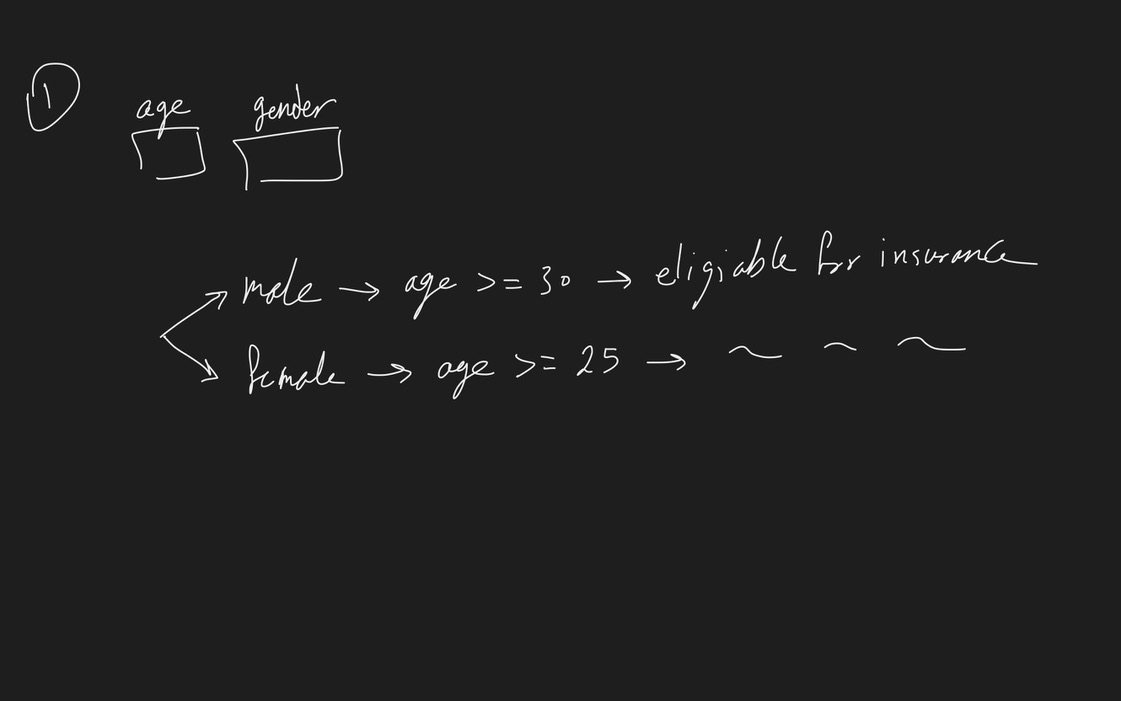 1
age gender
male → age >= 30 → eligiable for insurance
female → age >= 25 → ~ ~ ~